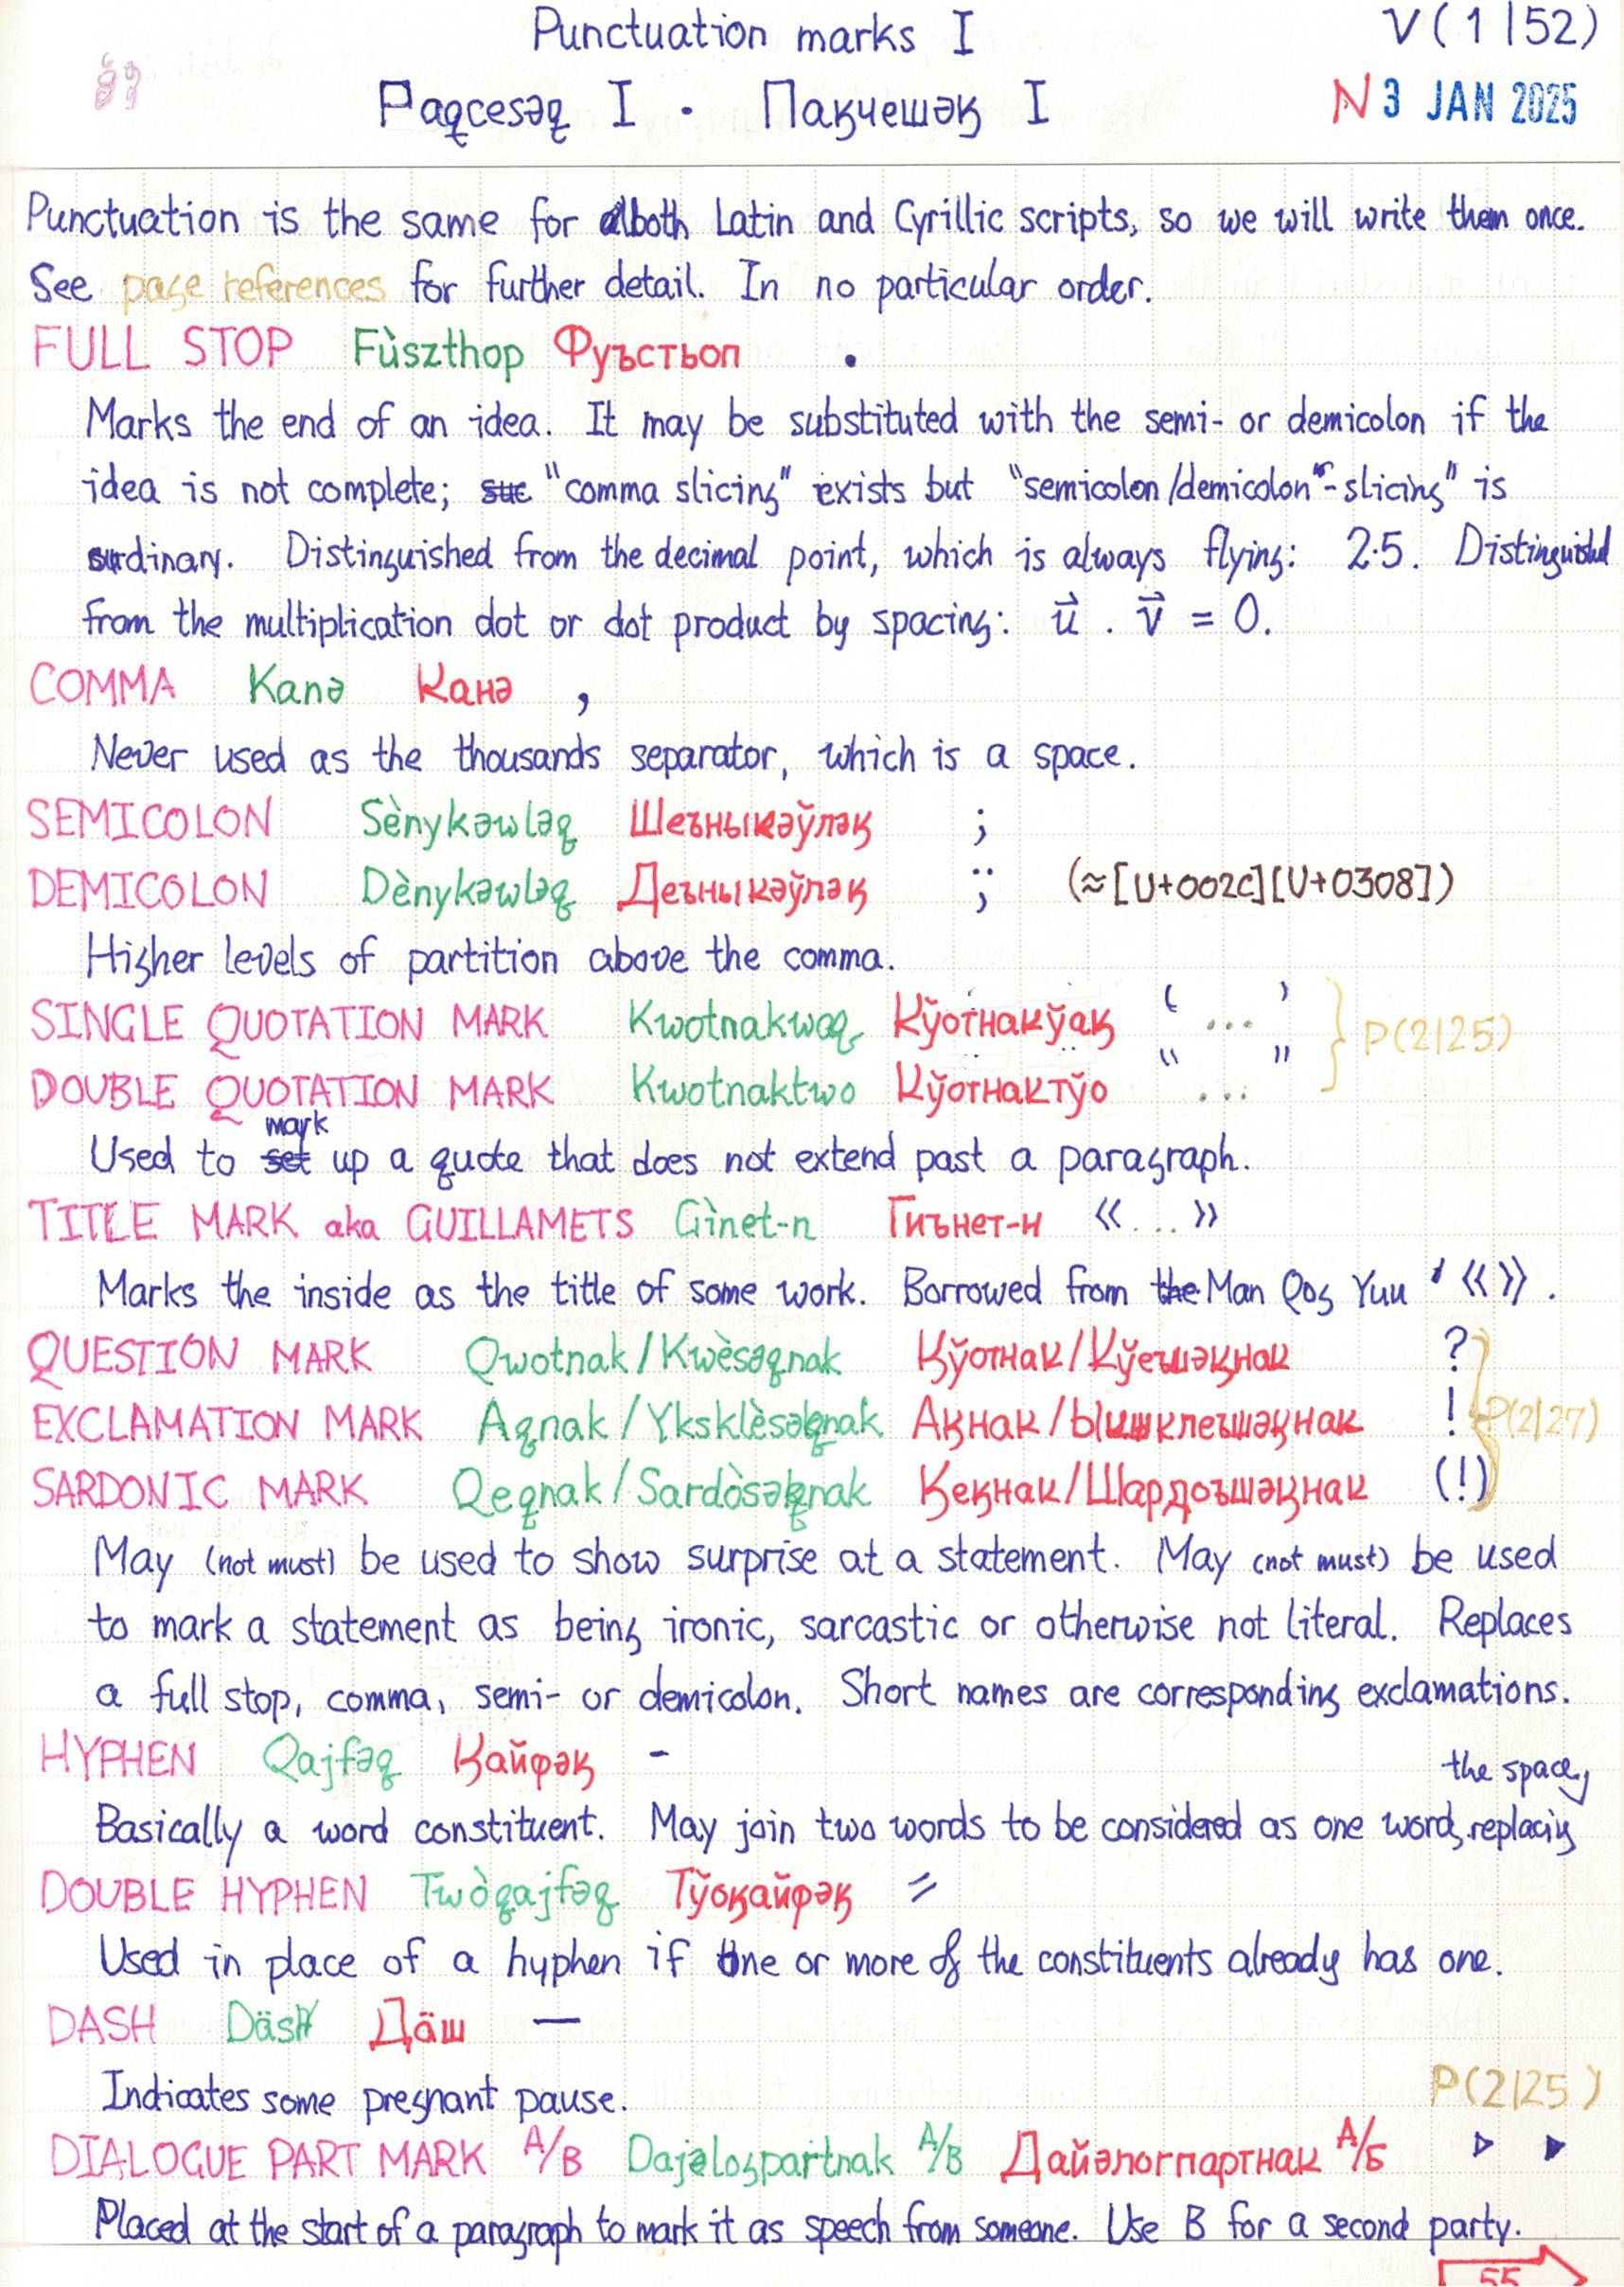 Punctuation marks I
V(1|52)
Paqcesəq I · Паӄчешәӄ I
N 3 JAN 2025
Punctuation is the same for both Latin and Cyrillic scripts, so we will write them once.
See page references for further detail. In no particular order.
FULL STOP Fùszthop Фуъстьоп .
Marks the end of an idea. It may be substituted with the semi- or demicolon if the
idea is not complete; "comma slicing" exists but "semicolon/demicolon-slicing" is
ordinary. Distinguished from the decimal point, which is always flying: 2·5. Distinguished
from the multiplication dot or dot product by spacing: u⃗ . v⃗ = 0.
COMMA Kanə Канә ,
Never used as the thousands separator, which is a space.
SEMICOLON Sènykəwləq Шеъныкәўләӄ ;
DEMICOLON Dènykəwləq Деъныкәўләӄ ,̈ (≈[U+002C][U+0308])
Higher levels of partition above the comma.
SINGLE QUOTATION MARK Kwotnakwaq Кўотнакўаӄ ‘ ... ’ } P(2|25)
DOUBLE QUOTATION MARK Kwotnaktwo Кўотнактўо “ ... ”
Used to mark up a quote that does not extend past a paragraph.
TITLE MARK aka GUILLAMETS Gìnet-n Гиънет-н « ... »
Marks the inside as the title of some work. Borrowed from Man Qog Yuu 《》.
QUESTION MARK Qwotnak/Kwèsəqnak Ӄўотнак/Кўеъшәӄнак ?
EXCLAMATION MARK Aqnak/Yksklèsəqnak Аӄнак/Ыкшклеъшәӄнак ! } P(2|27)
SARDONIC MARK Qeqnak/Sardòsəqnak Ӄеӄнак/Шардоъшәӄнак (!)
May (not must) be used to show surprise at a statement. May (not must) be used
to mark a statement as being ironic, sarcastic or otherwise not literal. Replaces
a full stop, comma, semi- or demicolon. Short names are corresponding exclamations.
HYPHEN Qajfəq Ӄайфәӄ -
Basically a word constituent. May join two words to be considered as one word, replacing
the space,
DOUBLE HYPHEN Twòqajfəq Тўоӄайфәӄ ⸗
Used in place of a hyphen if one or more of the constituents already has one.
DASH Däs Дäш —
Indicates some pregnant pause.
P(2|25)
DIALOGUE PART MARK A/B Dajəlogpartnak A/B Дайәлогпартнак А/Б ▷ ▶
Placed at the start of a paragraph to mark it as speech from someone. Use B for a second party.
55